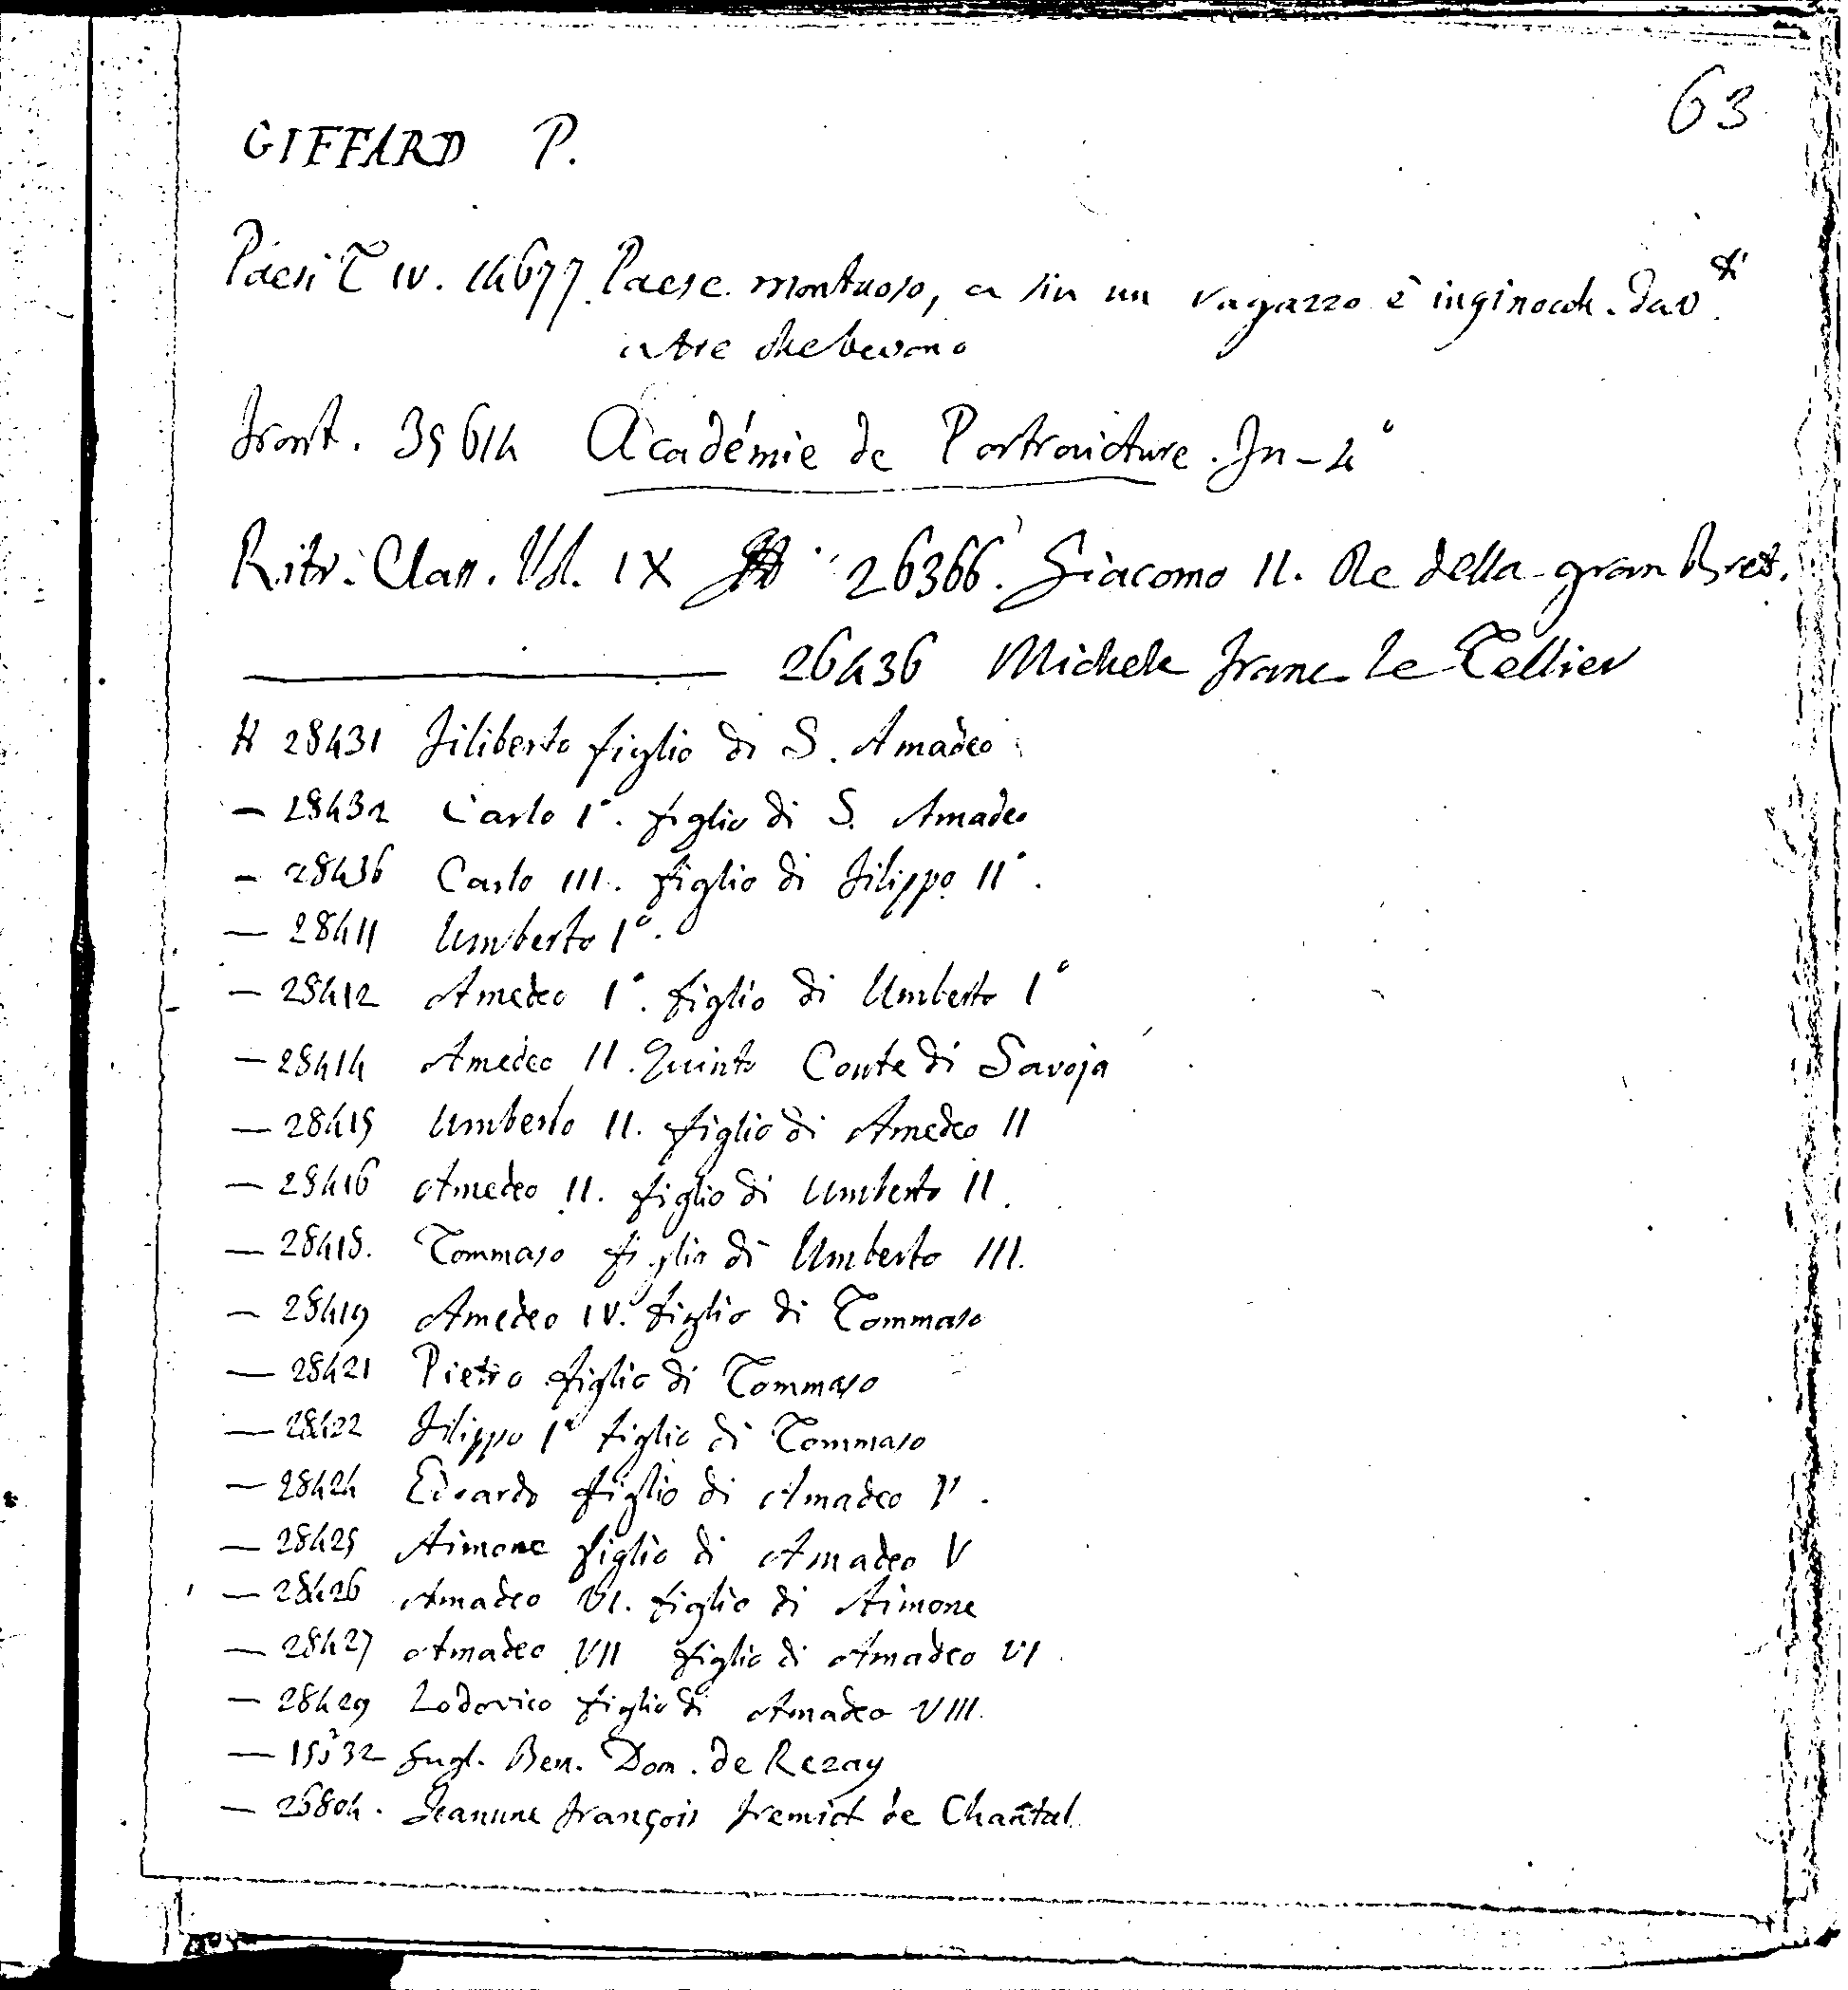 63
GIFFARD P.
Paesi T IV. 14677. Paese montuoso, a sin un ragazzo è inginocch. dav.ti
a tre che bevono
Front. 39614 Académie de Portraicture. In-4°
Ritr. Class. Vol. IX 26366. Giacomo II. Re della gran Bret.
26436 Michele Franc. Le Tellier
H 28431 Filiberto figlio di S. Amadeo
— 28432 Carlo I°. figlio di S. Amadeo
— 28436 Carlo III. figlio di Filippo II°.
— 28411 Umberto I°.
— 28412 Amedeo I°. figlio di Umberto I°
— 28414 Amedeo II. Quinto Conte di Savoja
— 28415 Umberto II. figlio di Amedeo II
— 28416 Amedeo II. figlio di Umberto II.
— 28418. Tommaso figlio di Umberto III.
— 28419 Amedeo IV. figlio di Tommaso
— 28421 Pietro figlio di Tommaso
— 28422 Filippo I° figlio di Tommaso
— 28424 Edoardo figlio di Amadeo V.
— 28425 Aimone figlio di Amadeo V
— 28426 Amadeo VI. figlio di Aimone
— 28427 Amadeo VII figlio di Amadeo VI
— 28429 Lodovico figlio di Amadeo VIII.
— Gugl. Ben. Dom. de Rezay
— 26804. Jeanne François Fremiot de Chantal